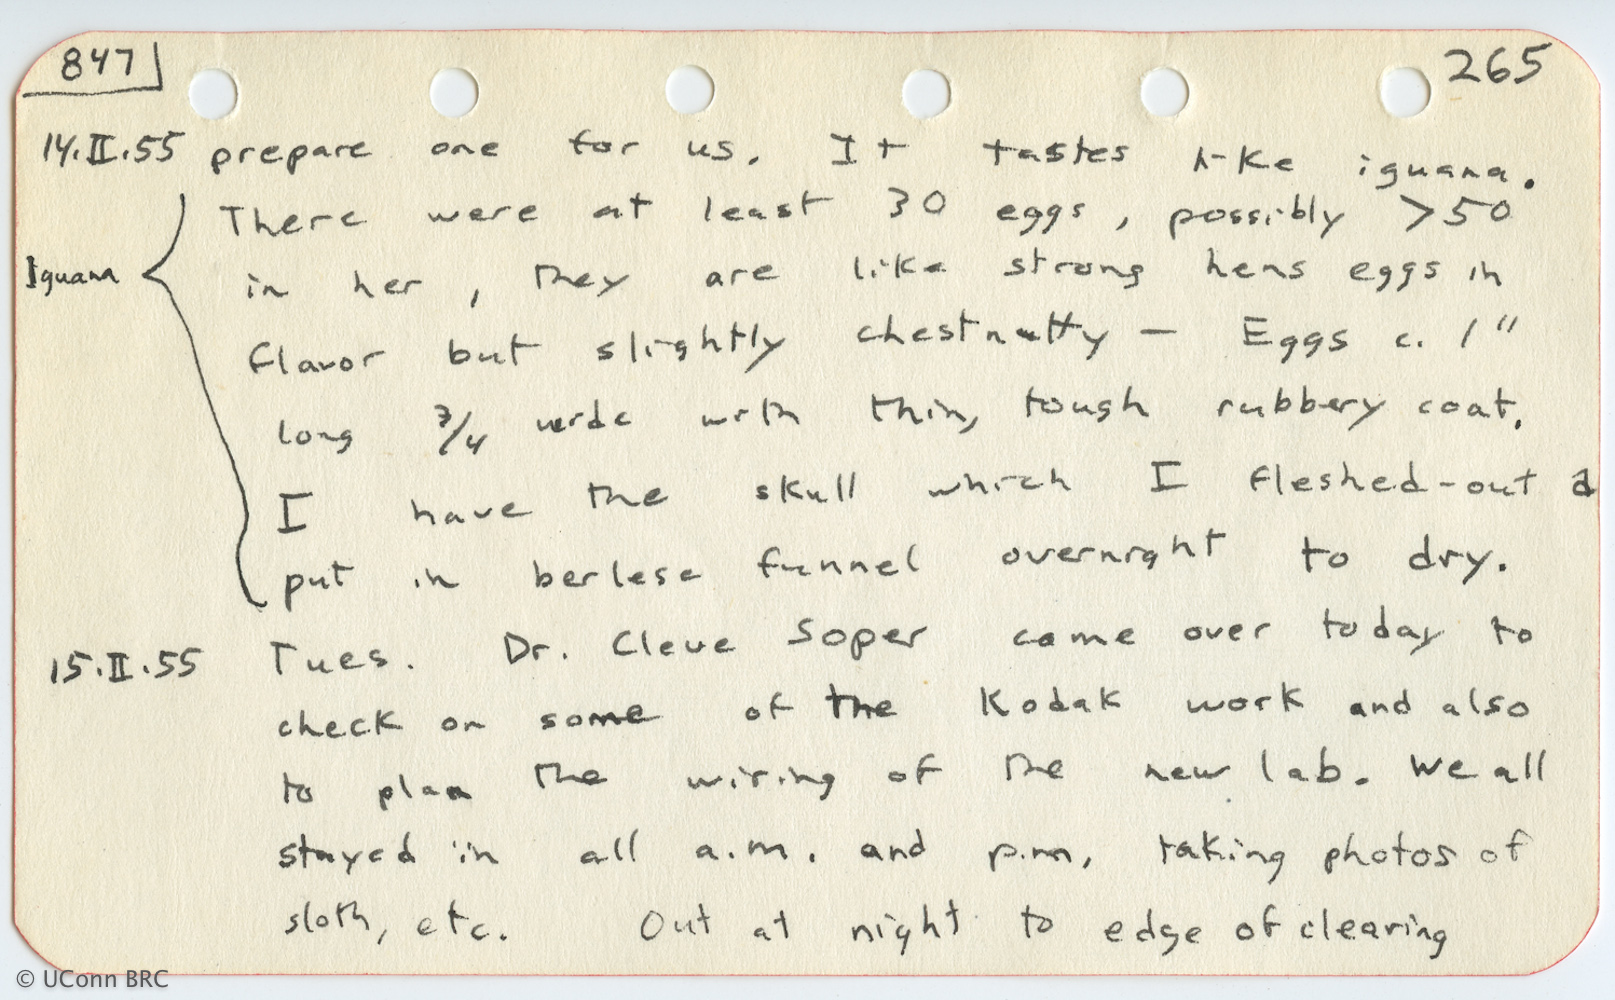 847
265
14.II.55 prepare one for us. It tastes like iguana.
There were at least 30 eggs, possibly >50
Iguana in her, they are like strong hens eggs in
flavor but slightly chestnutty — Eggs c. 1"
long 3/4 wide with thin, tough rubbery coat.
I have the skull which I fleshed-out a
put in berlese funnel overnight to dry.
15.II.55 Tues. Dr. Cleve Soper came over today to
check on some of the Kodak work and also
to plan the wiring of the new lab. We all
stayed in all a.m. and p.m. taking photos of
sloth, etc. Out at night to edge of clearing
© UConn BRC